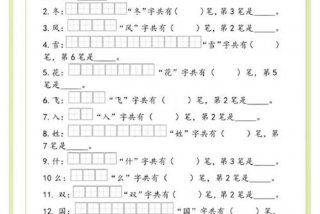 2. 冬: "冬"字共有( )笔, 第 3 笔是____。
3. 风: "风"字共有( )笔, 第 2 笔是____。
4. 雪: "雪"字共有( )
笔, 第 6 笔是____。
5. 花: "花"字共有( )笔, 第 5
笔是____。
6. 飞: "飞"字共有( )笔, 第 2 笔是____。
7. 入: "入"字共有( )笔, 第 2 笔是____。
8. 姓: "姓"字共有( )笔, 第
7 笔是____。
9. 什: "什"字共有( )笔, 第 3 笔是____。
10 么: "么"字共有( )笔, 第 2 笔是____。
11. 双: "双"字共有( )笔, 第 2 笔是____。
12. 国: "国"字共有( )笔,